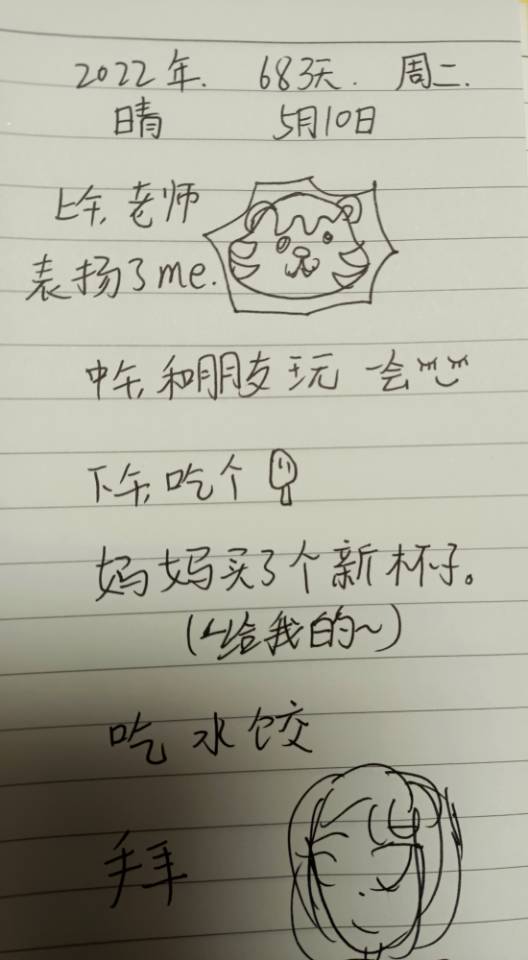 2022年. 683天. 周二.
晴 5月10日
上午, 老师
表扬了me.
中午, 和朋友玩一会
下午, 吃个
妈妈买了个新杯子。
(给我的~)
吃水饺
拜